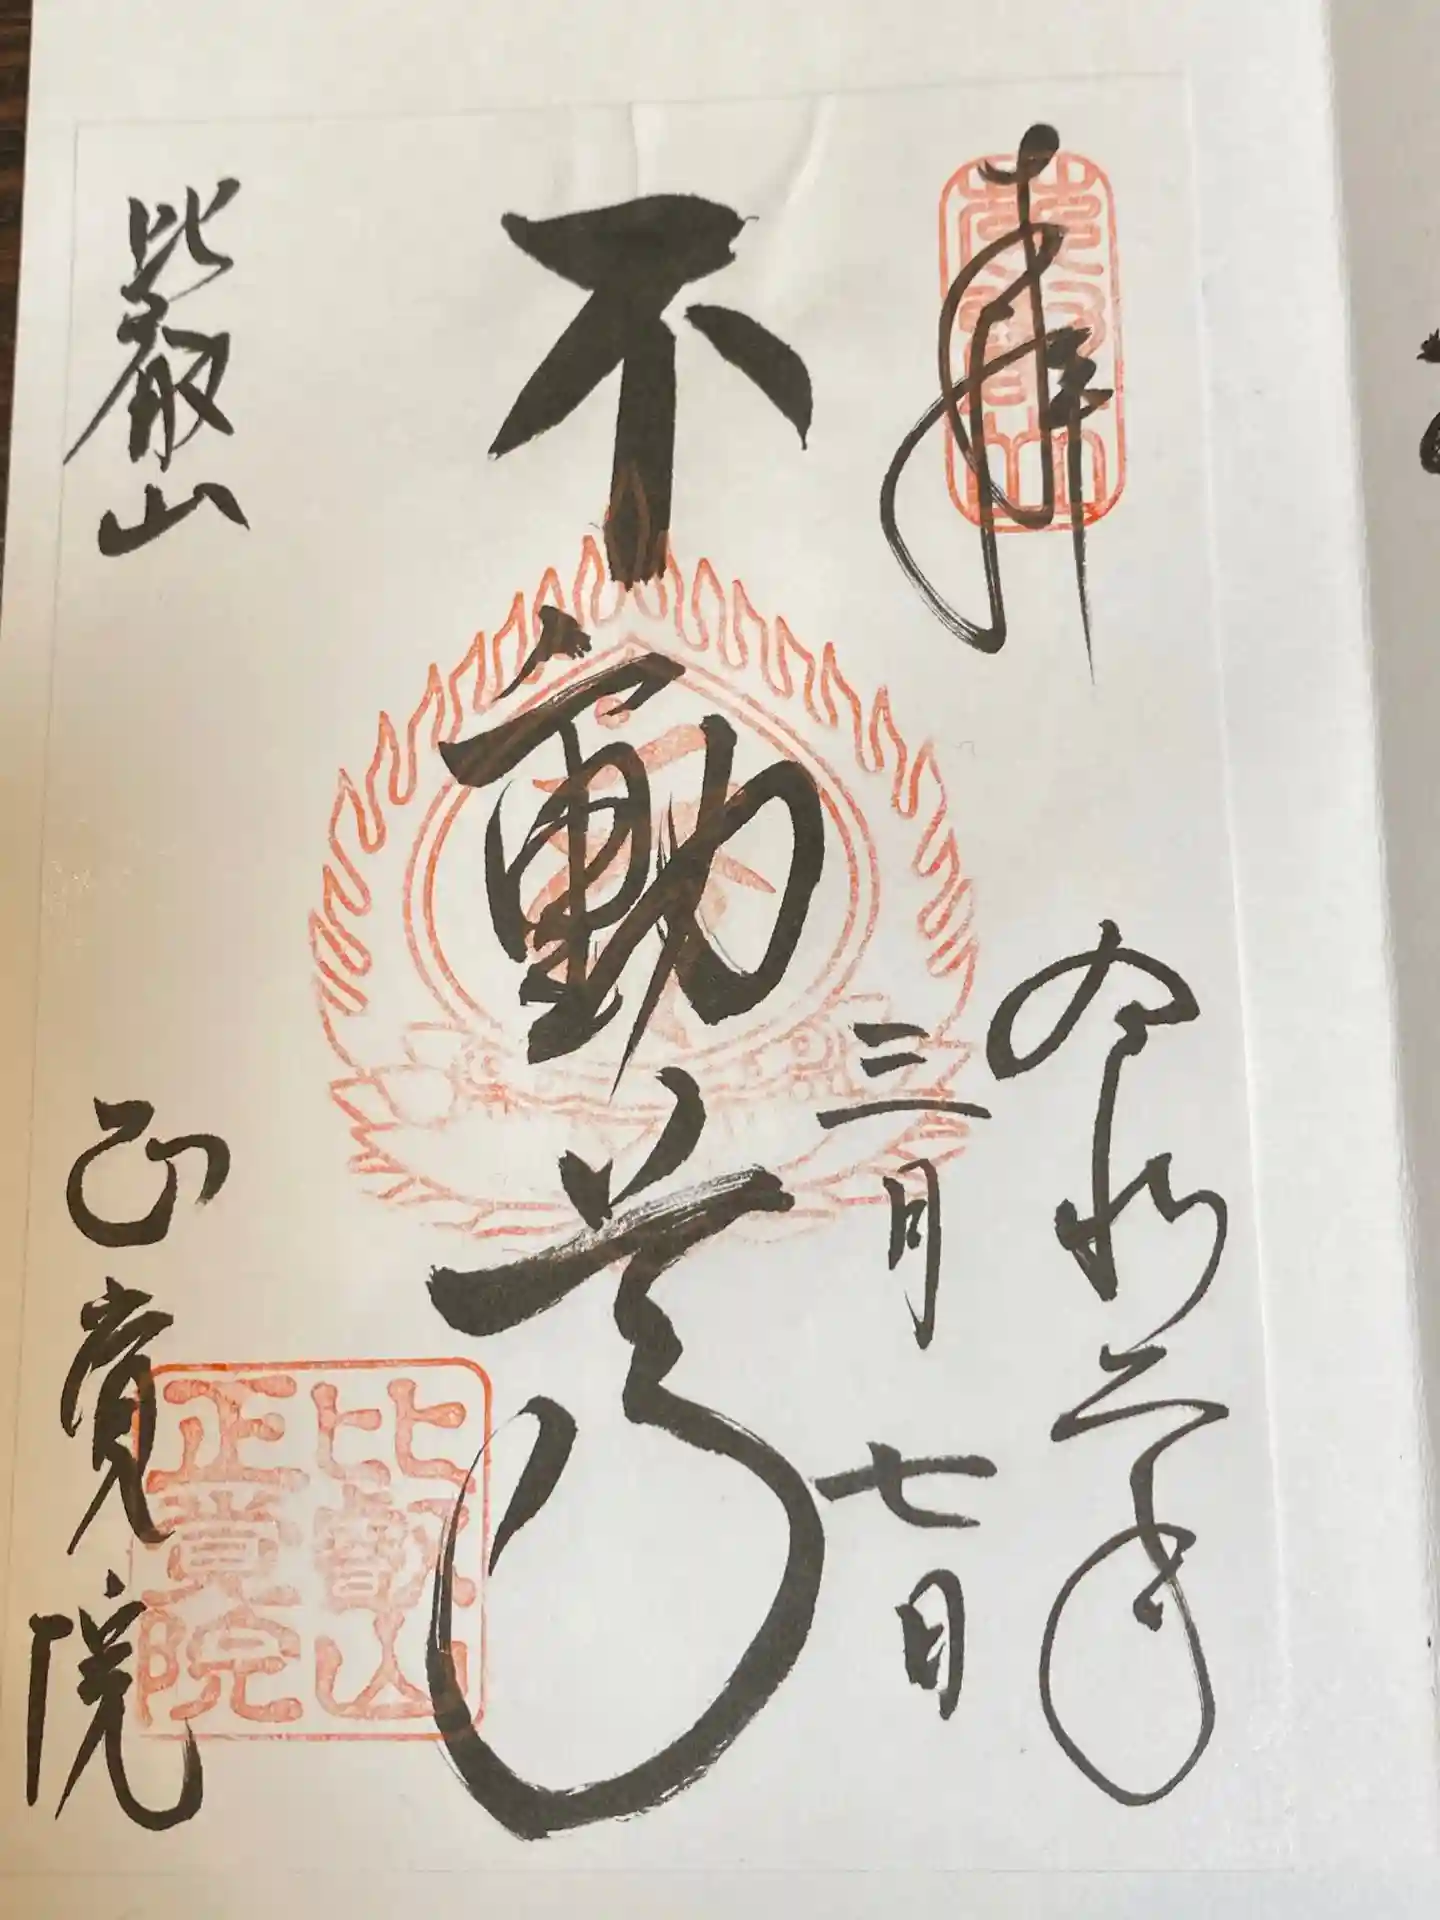 奉拝
令和二年
三月七日
不動尊
比叡山
正覚院
比叡山
正覚院